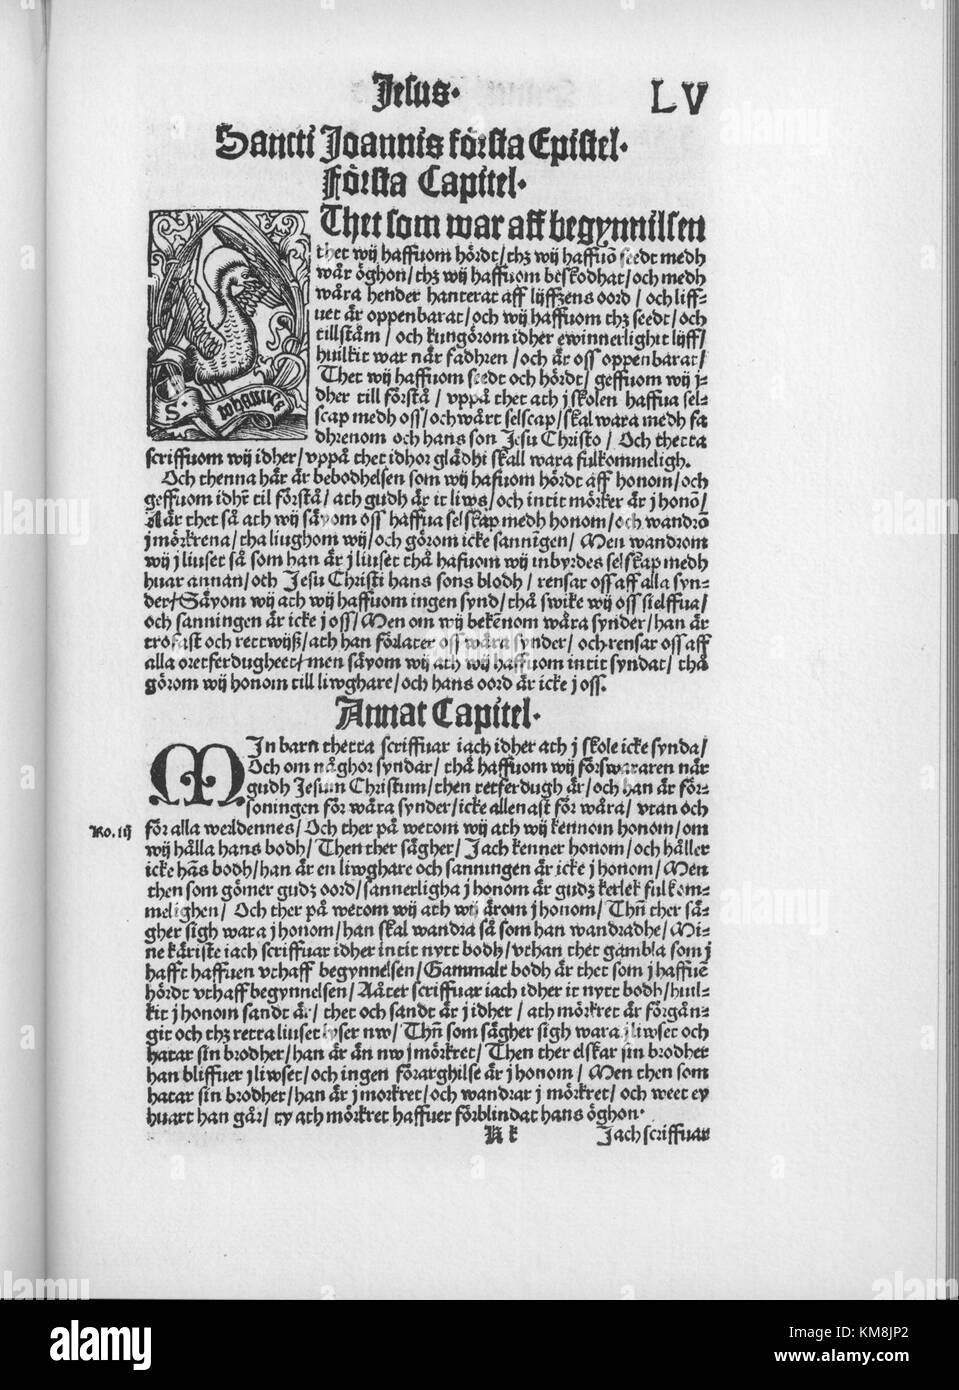 Jesus.
LV
Sancti Joannis första Epistel.
Första Capitel.
Thet som war aff begynnilsen
thet wij haffuom hördt/thz wij haffuō seedt medh
wår öghon/thz wij haffuom beskodhat/och medh
wåra hender hanterat aff lijffzens oord/och liff-
uet är oppenbarat/och wij haffuom thz seedt/och
tillståm/och kungörom idher ewinnerlighit lijff/
huilkit war när fadhren/och är oss oppenbarat/
Thet wij haffuom seedt och hördt/geffuom wij j-
dher till förstå/vppå thet ath j skolen haffua sel-
scap medh oss/och wårt selscap/skal wara medh fa
dhrenom och hans son Jesu Christo/Och thetta
scriffuom wij idher/vppå thet idhor glädhi skall wara fulkommeligh.
Och thenna här är bebodhelsen som wij hafuom hördt aff honom/och
geffuom idhr̄ til förstå/ath gudh är it liws/och intit mörker är j honō/
När thet så ath wij säyom oss haffua selskap medh honom/och wandrō
j mörkrena/tha liughom wij/och görom icke sannīgen/Men wandrom
wij j liuset så som han är j liuset thå hafuom wij inbyrdes selskap medh
huar annan/och Jesu Christi hans sons blodh/rensar oss aff alla syn-
der/Säyom wij ath wij haffuom ingen synd/thå swike wij oss sielffua/
och sanningen är icke j oss/Men om wij bekēnom wåra synder/han är
trofast och rettwijß/ath han förlater oss wåra synder/och rensar oss aff
alla oretferdugheet/men säyom wij ath wij haffuom intit syndat/thå
görom wij honom till liwghare/och hans oord är icke j oss.
Annat Capitel.
MIn barn thetta scriffuar iach idher ath j skole icke synda/
Och om någhor syndar/thå haffuom wij förswararen när
gudh Jesum Christum/then retferdugh är/och han är för-
soningen för wåra synder/icke allenast för wåra/vtan och
Ro. iij
för alla werldennes/Och ther på wetom wij ath wij kennom honom/om
wij hålla hans bodh/Then ther sägher/Jach kenner honom/och håller
icke hās bodh/han är en liwghare och sanningen är icke j honom/Men
then som gömer gudz oord/sannerligha j honom är gudz kerlek fulkom-
melighen/Och ther på wetom wij ath wij ärom j honom/Thn̄ ther sä-
gher sigh wara j honom/han skal wandra så som han wandradhe/Mi-
ne käriste iach scriffuar idher intit nytt bodh/vthan thet gambla som j
hafft haffuen vthaff begynnelsen/Gammalt bodh är thet som j haffuē
hördt vthaff begynnelsen/Aåter scriffuar iach idher it nytt bodh/huil-
kit j honom sandt är/thet och sandt är j idher/ath mörkret är förgån-
git och thz retta liuset lyser nw/Thn̄ som sägher sigh wara j liwset och
hatar sin brodher/han är än nw j mörkret/Then ther elskar sin brodher
han bliffuer j liwset/och ingen förarghilse är j honom/Men then som
hatar sin brodher/han är j morkret/och wandrar j mörkret/och weet ey
huart han går/ty ath mörkret haffuer förblindat hans öghon.
Kk
Jach scriffuar
alamy
KM8JP2
www.alamy.com